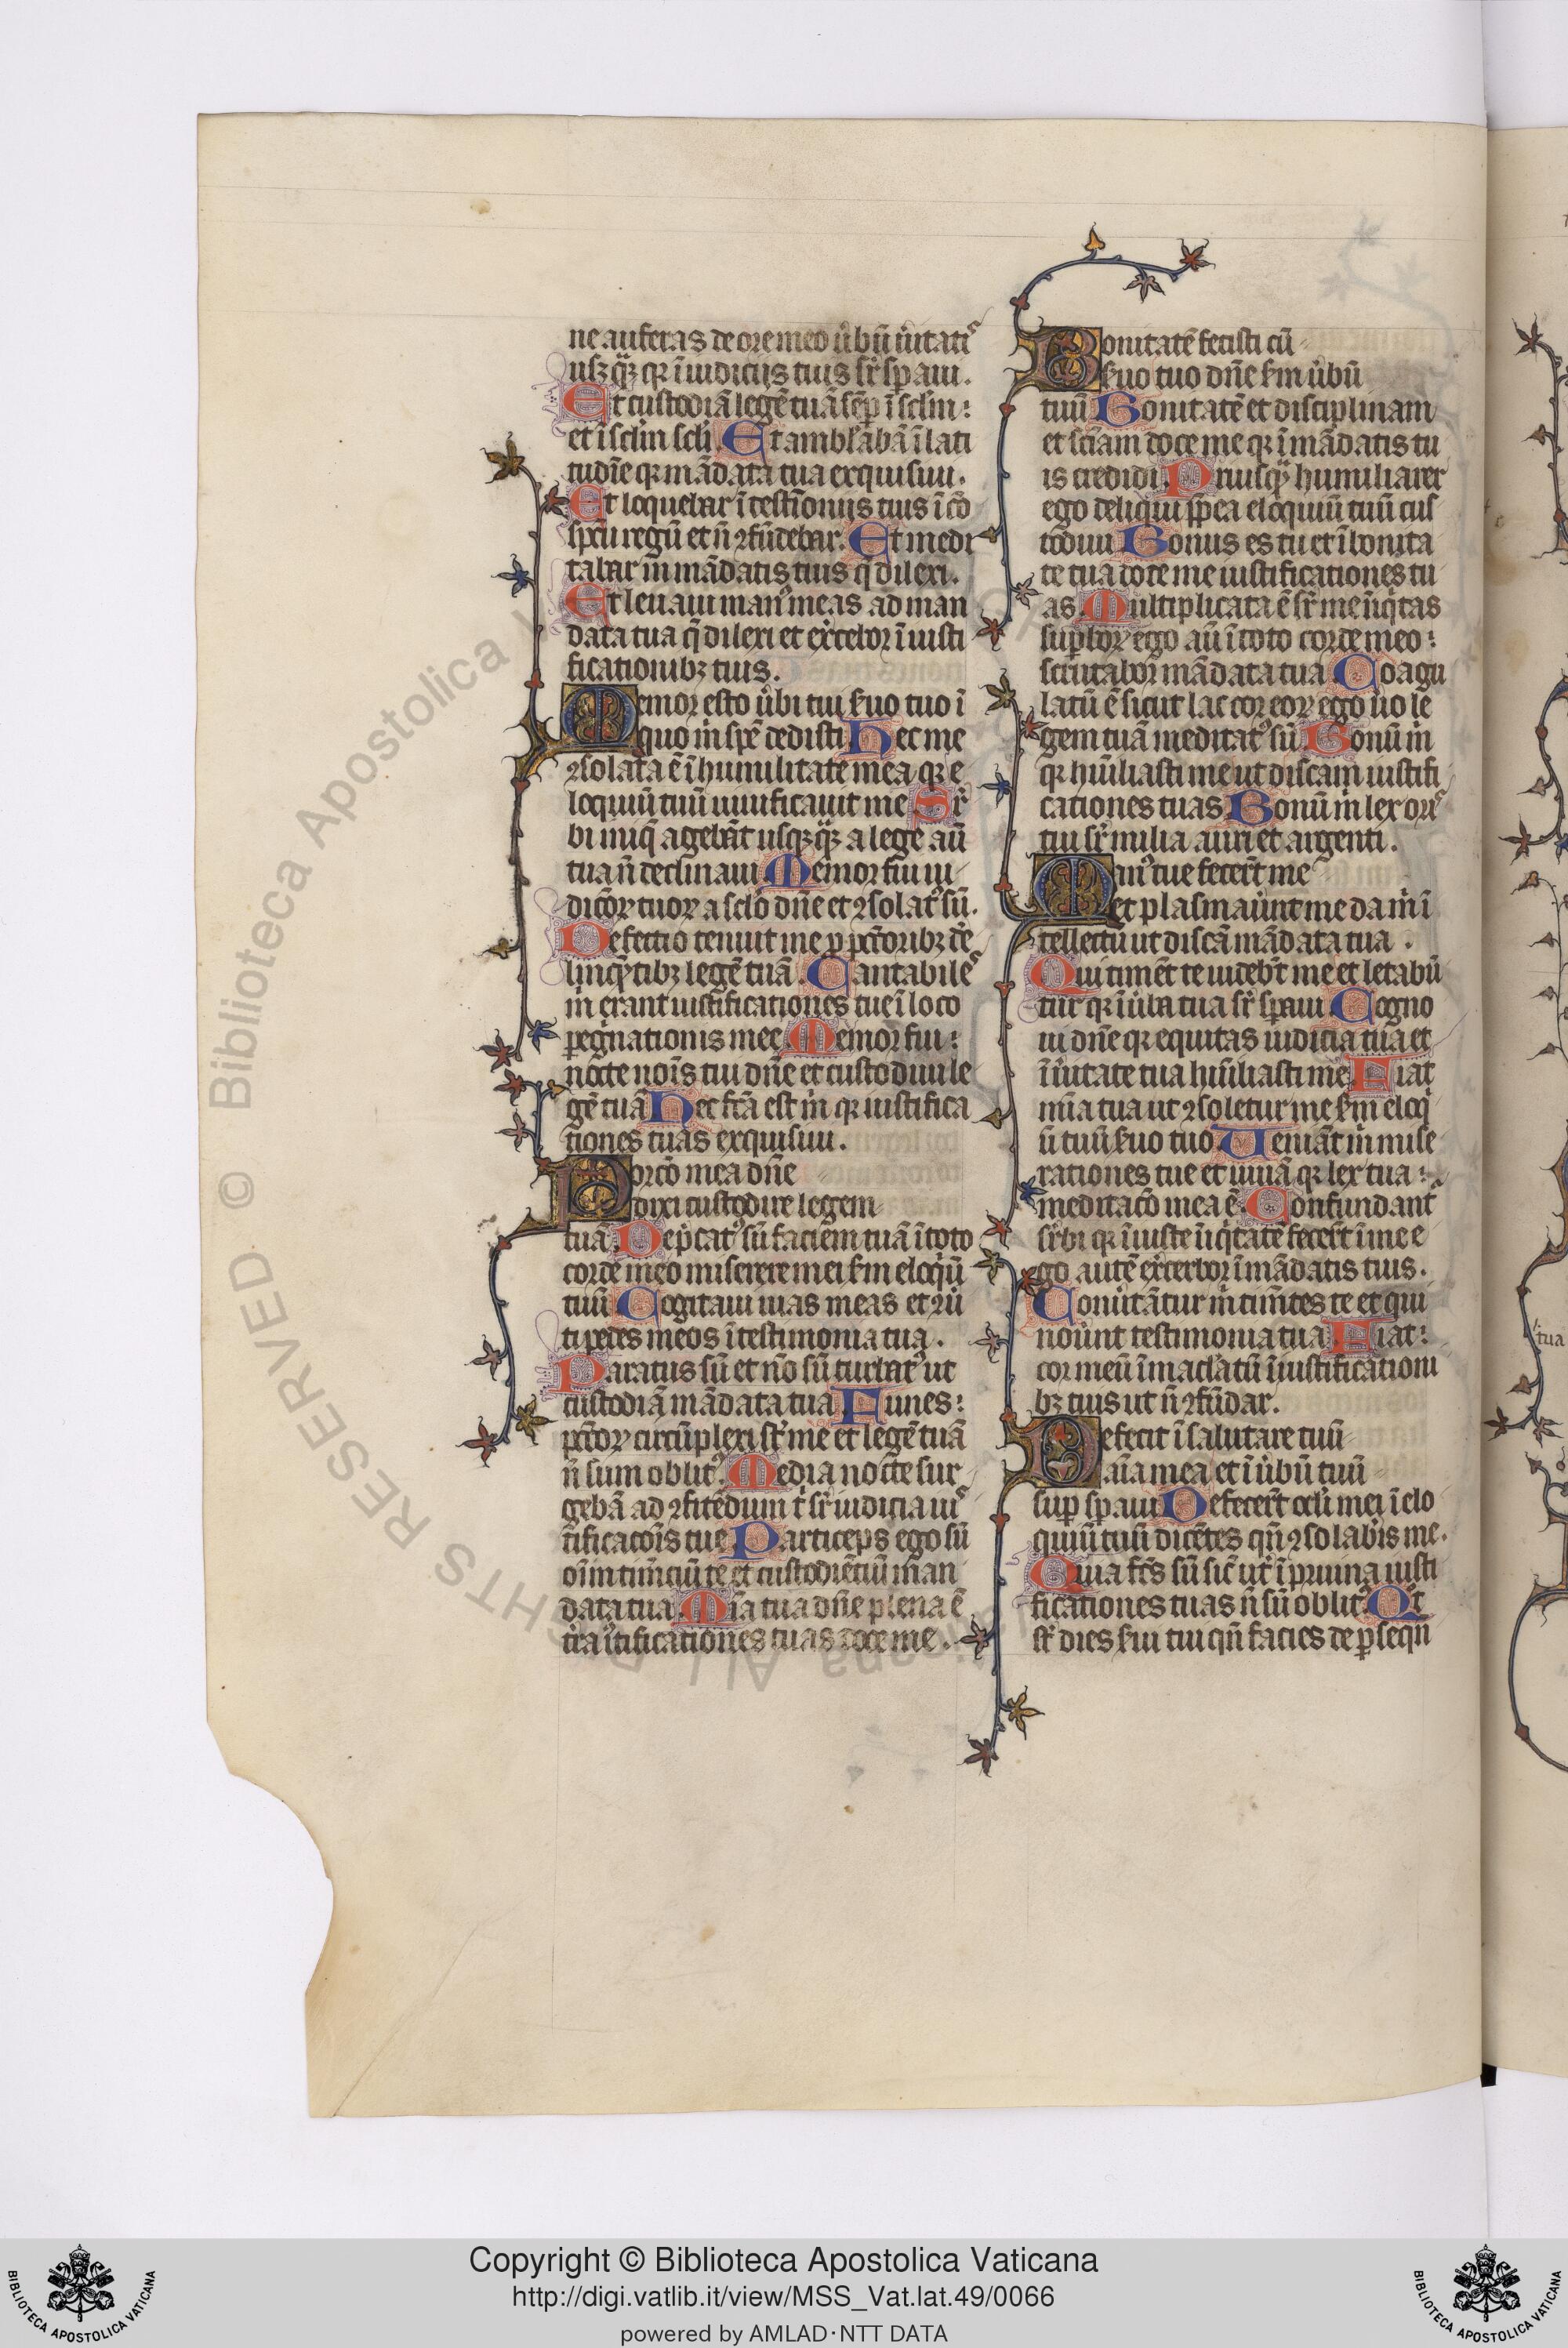 ne auferas de ore meo ủbũ ủitatiˢ
usqꝫ q̃qꝫ qꝛ ĩ iudiciis tuis sr̃ sꝑaui.
Et custodiã legẽ tuã sẽꝑ ĩ sclm̃:
et ĩ sclm̃ scli Et ambl̃abã ĩ lati
tudĩe qꝛ mãdata tua exquisiui.
Et loquebar ĩ testĩoniis tuis ĩ cõ
spcũ regũ et ñ ꝯfũdebar. Et medi
tabar in mãdatis tuis q̃ dilexi.
Et leuaui manꝰ meas ad man
data tua q̃ dilexi et ex̉cebor ĩ iusti
ficationibꝫ tuis.
Memor esto ủbi tui ẜuo tuo ĩ
quo m̉ spẽ dedisti Hec me
ꝯsolata ẽ ĩ humilitate mea qꝛ e
loquiũ tuũ uiuificauit me Sr̃
bi iniq̃ agebãt usqꝫ q̃qꝫ a lege aũ
tua ñ declinaui Memor fui iu
dic̃oꝝ tuoꝝ a sclo dñe et ꝯsolatꝰ sũ.
Defectio tenuit me ꝓ pctõribꝫ de
linq̃tibꝫ legẽ tuã Cantabileˢ
m̉ erant iustificationes tue ĩ loco
ꝑeg̉nationis mee Memor fui:
nocte noĩs tui dñe et custodiui le
gẽ tuã Hec fc̃a est m̉ qꝛ iustifica
tiones tuas exquisiui.
Porc̃o mea dñe
dixi custodire legem
tuã Dep̃catꝰ sũ faciem tuã ĩ toto
corde meo miserere mei ẜm eloq̉ũ
tuũ Cogitaui uias meas et ꝯủ
ti pedes meos ĩ testimonia tua.
Paratus sũ et nõ sũ turbatꝰ ut
custodiã mãdata tua Funes:
pctõꝝ circũplexi st̃ me et legẽ tuã
ñ sum oblitꝰ Media nocte sur
gebã ad ꝯfitẽdum t̉ sr̃ iudicia iuˢ
tificac̃oĩs tue Particeps ego sũ
oĩm timẽciũ te et custodiẽciũ man
data tua Mĩa tua dñe plena ẽ
tr̃a iꝰtificationes tuas doce me.
Bonitatẽ fecisti cũ
ẜuo tuo dñe ẜm ủbũ
tuũ Bonitatẽ et disciplinam
et sciam doce me qꝛ ĩ mãdatis tu
is credidi Priusq̃ humiliarer
ego deliqui ꝓpea eloquiũ tuũ cus
todiui Bonus es tu et ĩ bonita
te tua doce me iustificationes tu
as Multiplicata ẽ sr̃ me iniq̉tas
suꝑboꝝ ego aũ ĩ toto corde meo:
scrutabor mãdata tua Coagu
latũ ẽ sicut lac cor eoꝝ ego ủo le
gem tuã meditatꝰ sũ Bonũ m̉
qꝛ humĩliasti me ut discam iustifi
cationes tuas Bonũ m̉ lex oriˢ
tui sr̃ milia auri et argenti.
Manꝰ tue fecer̃t me
et plasmauẽrt me da m̉ ĩ
tellectũ ut discã mãdata tua.
Qui timẽt te uidebt̃ me et letabũ
tur qꝛ ĩ ủba tua sr̃ sꝑaui Cogno
ui dñe qꝛ equitas iudicia tua et
ĩ ủitate tua humĩliasti me Fiat
mĩa tua ut ꝯsoletur me ẜm eloq̉
ũ tuũ ẜuo tuo Ueniãt m̉ mise
rationes tue et uiuã qꝛ lex tua:
meditac̃o mea ẽ Confundant̃
sr̃bi qꝛ ĩiuste ĩiq̉tatẽ fecer̃t ĩ me e
go autẽ ex̉cebor ĩ mãdatis tuis.
Conủtãtur m̉ timẽtes te et qui
nouẽrt testimonia tua Fiat:
cor meũ ĩmacl̃atũ ĩ iustificationi
bꝫ tuis ut ñ ꝯfũdar.
Defecit ĩ salutare tuũ
aĩa mea et ĩ ủbũ tuũ
suꝑ sꝑaui Defecer̃t ocl̃i mei ĩ elo
quiũ tuũ dicẽtes qñ ꝯsolab̃is me.
Quia fc̃s sũ sic̃ ut̉ ĩ pruina iusti
ficationes tuas ñ sũ oblitꝰ Qt̃
st̃ dies ẜui tui qñ facies de ꝑseqñ
tua
Copyright © Biblioteca Apostolica Vaticana
http://digi.vatlib.it/view/MSS_Vat.lat.49/0066
powered by AMLAD·NTT DATA
BIBLIOTECA APOSTOLICA VATICANA
BIBLIOTECA APOSTOLICA VATICANA